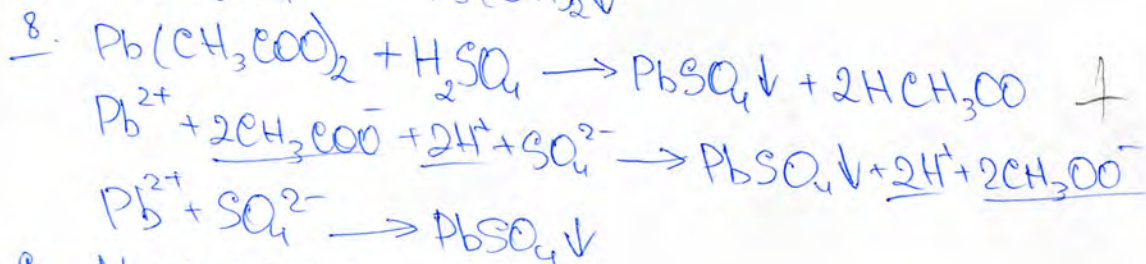 8. Pb(CH₃COO)₂ + H₂SO₄ → PbSO₄↓ + 2HCH₃OO +
Pb²⁺ + 2CH₃COO⁻ + 2H⁺ + SO₄²⁻ → PbSO₄↓ + 2H⁺ + 2CH₃OO⁻
Pb²⁺ + SO₄²⁻ → PbSO₄↓